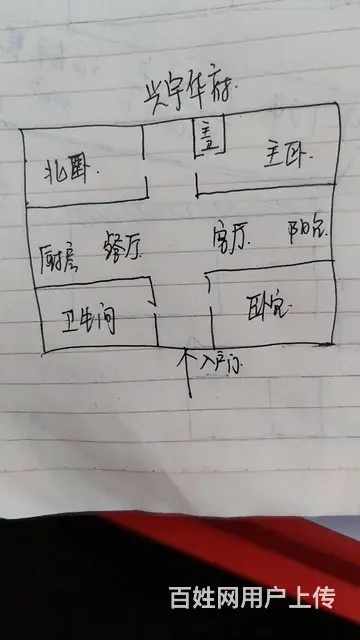 兴宇华府
北卧
主卫
主卧
厨房 餐厅 客厅 阳台
卫生间
卧室
入户门
百姓网用户上传